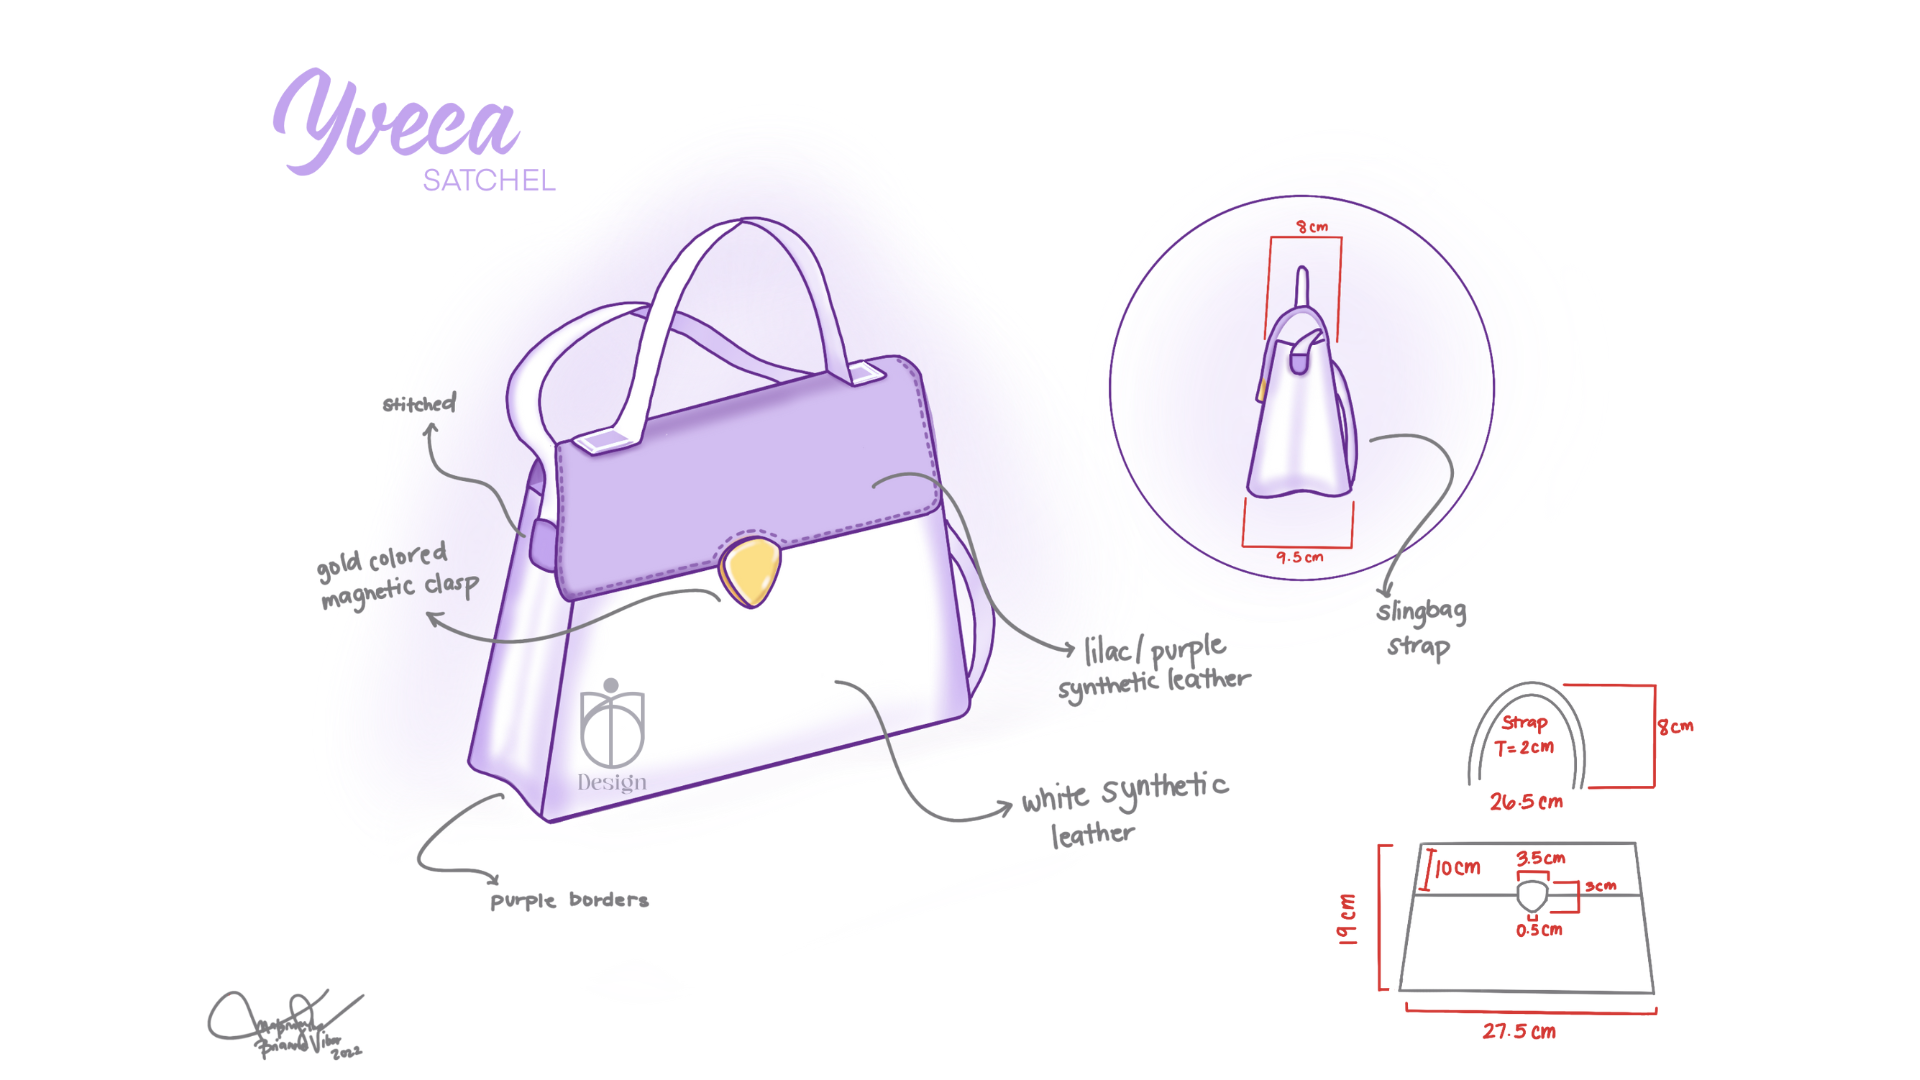 Yveca
SATCHEL
stitched
gold colored
magnetic clasp
Design
purple borders
lilac/purple
synthetic leather
white synthetic
leather
8cm
9.5cm
slingbag
strap
Strap
T=2cm
8cm
26.5cm
10cm
3.5cm
3cm
0.5cm
19cm
27.5cm
2022